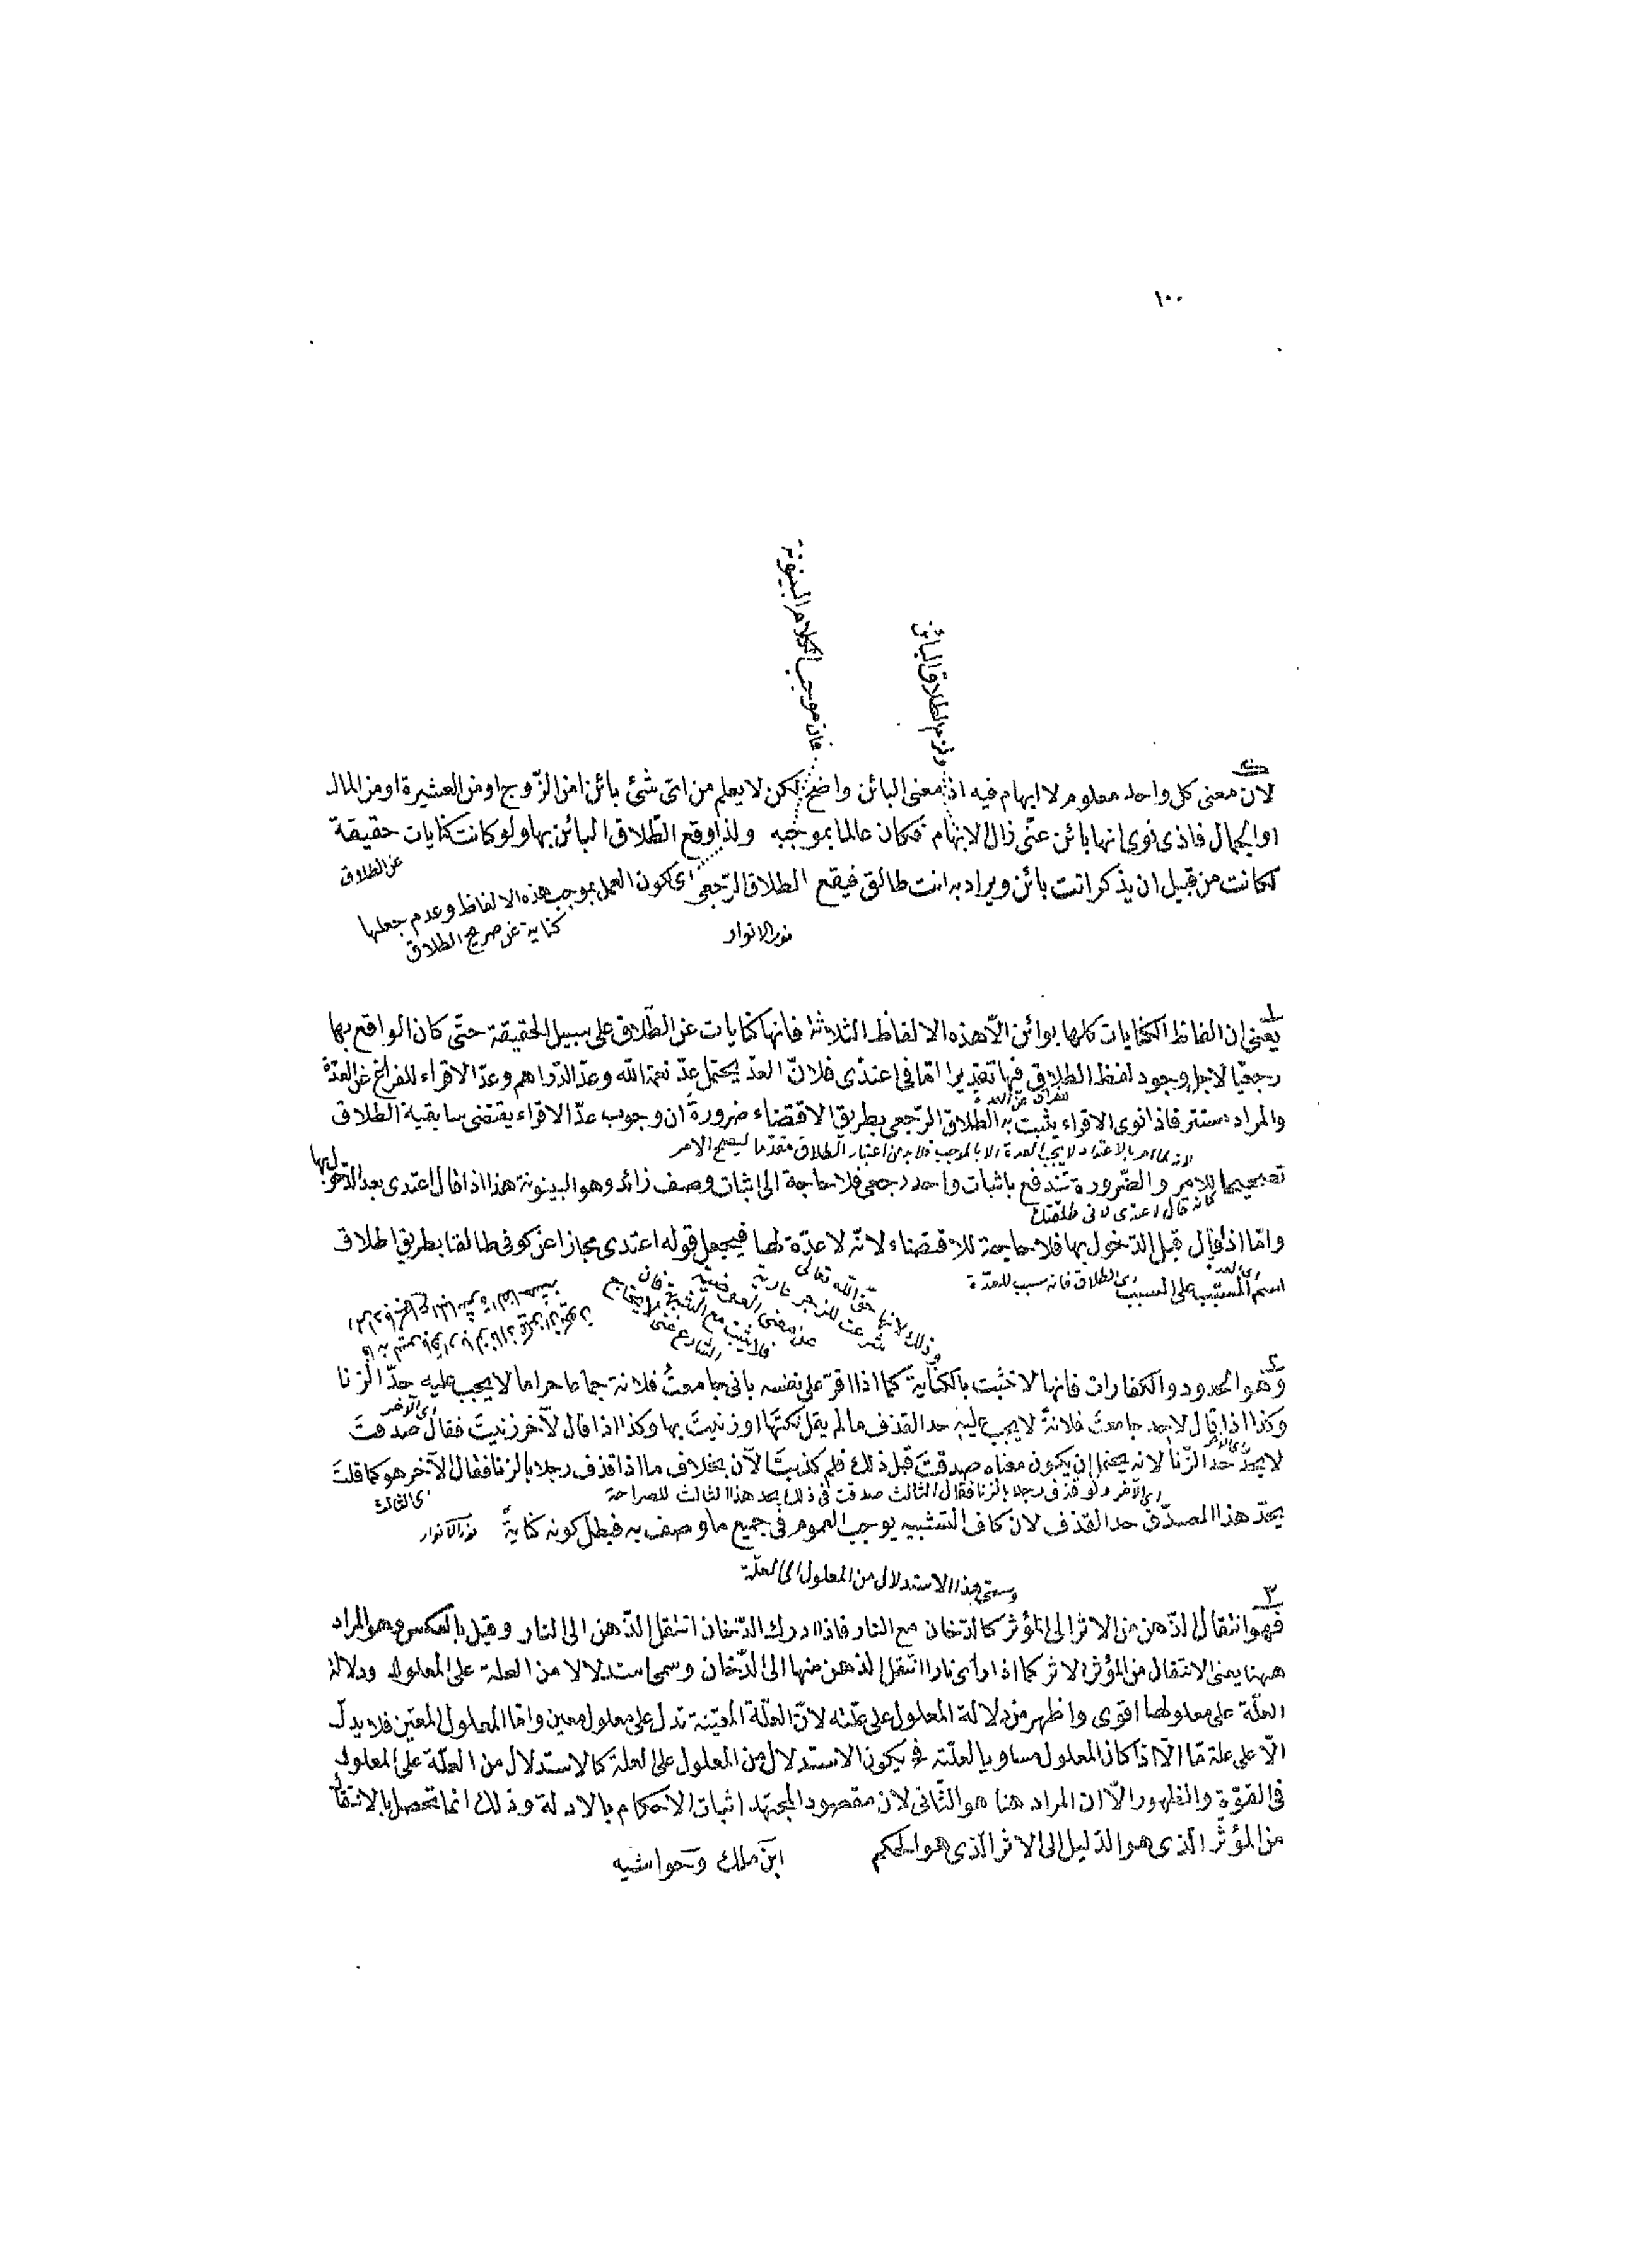 ١٠٠
فان موجب الكلام البينونة
ولزم الطلاق البائن
لان معنى كل واحد معلوم لا ابهام فيه اذ معنى البائن واضح لكن لا يعلم من اىّ شئ بائن امن الزّوج او من العشيرة او من المال
او الجمال فاذى نوى انها بائن عنّى زال الابهام فكان عالما بموجبه ولذا وقع الطّلاق البائن بها ولو كانت كنايات حقيقة
عن الطلاق
لكانت من قبيل ان يذكر انت بائن ويراد به انت طالق فيقع الطلاق الرّجعى اى لكون العمل بموجب هذه الالفاظ وعدم جعلها
كناية عن صريح الطلاق
نور الانوار
١
يعنى ان الفاظ الكنايات كلها بوائن الّا هذه الالفاظ الثلاثة فانها كنايات عن الطّلاق على سبيل الحقيقة حتّى كان الواقع بها
رجعيّا لاجل وجود لفظ الطلاق فيها تقديرا امّا فى اعتدّى فلانّ العدّ يحتمل عدّ نعم الله وعدّ الدّراهم وعدّ الاقراء للفراغ عن العدّة
والمراد مستتر فاذا نوى الاقراء يثبت به الطّلاق الرّجعى بطريق الاقتضاء ضرورةَ ان وجوب عدّ الاقراء يقتضى سابقية الطلاق
لانه لما امر بالاعتداد لا يجب العدة الا بالموجب فلا بد من اعتبار الطلاق مقدّما ليصح الامر
تصحيحا للامر والضّرورة تندفع باثبات واحد رجعى فلا حاجة الى اثبات وصف زائد وهو البينونة هذا اذا قال اعتدى بعد الدّخول بها
كانه قال اعتدّى لانى طلّقتك
وامّا اذا قال قبل الدّخول بها فلا حاجة للاقتضاء لانّه لا عدّة لها فيجعل قوله اعتدى مجازا عن كونى طالقا بطريق اطلاق
اسم المسبّب على السبب اى الطلاق فانه سبب للعدّة
وذلك لانها حق الله تعالى
٢
وهو الحدود والكفارات فانها لا تثبت بالكناية كما اذا اقرّ على نفسه بانى جامعتُ فلانة جماعا حراما لا يجب عليه حدّ الزنا
وكذا اذا قال لاحد جامعتَ فلانةً لا يجب عليه حد القذف ما لم يقل نكتَها او زنيتَ بها وكذا اذا قال لآخر زنيتَ فقال صدقتَ
اى الآخر
لا يحدّ حدّ الزّنا لانه يحتمل ان يكون معناه صدقتَ قبل ذلك فلم كذبتَ الآن بخلاف ما اذا قذف رجلا بالزنا فقال الآخر هو كما قلتَ
اى الآخر ولو قذف رجلا بالزنا فقال الثالث صدقت فى ذلك يحد هذا الثالث للصراحة
اى الثالث
يحدّ هذا المصدّق حد القذف لان كاف التشبيه يوجب العموم فى جميع ما وصف به فبطل كونه كنايةً نور الانوار
وسمّى هذا الاستدلال من المعلول الى العلّة
٣
فهو انتقال الذّهن من الاثر الى المؤثر كالدّخان مع النار فاذا ادرك الدّخان انتقل الذّهن الى النار وقيل بالعكس وهو المراد
ههنا يعنى الانتقال من المؤثر الى الاثر كما اذا رأى نارا انتقل الذهن منها الى الدّخان وسمى استدلالا من العلة على المعلول ودلالة
العلّة على معلولها اقوى واظهر من دلالة المعلول على علّته لانّ العلّة المعيّنة تدل على معلول معين وامّا المعلول المعيّن فلا يدلّ
الّا على علة مّا الّا اذا كان المعلول مساويا لعلّته فيكون الاستدلال من المعلول على العلة كالاستدلال من العلّة على المعلول
فى القوّة والظهور الّا ان المراد هنا هو الثّانى لان مقصود المجتهد اثبات الاحكام بالادلة وذلك انما يحصل بالانتقال
من المؤثّر الّذى هو الدّليل الى الاثر الّذى هو الحكم ابن ملك وحواشيه